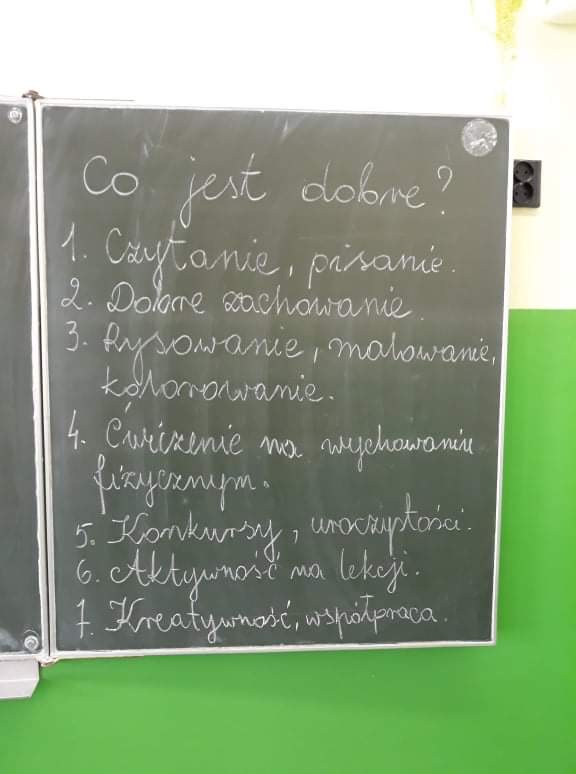 Co jest dobre?
1. Czytanie, pisanie.
2. Dobre zachowanie.
3. Rysowanie, malowanie,
kolorowanie.
4. Ćwiczenie na wychowaniu
fizycznym.
5. Konkursy, uroczystości.
6. Aktywność na lekcji.
7. Kreatywność, współpraca.